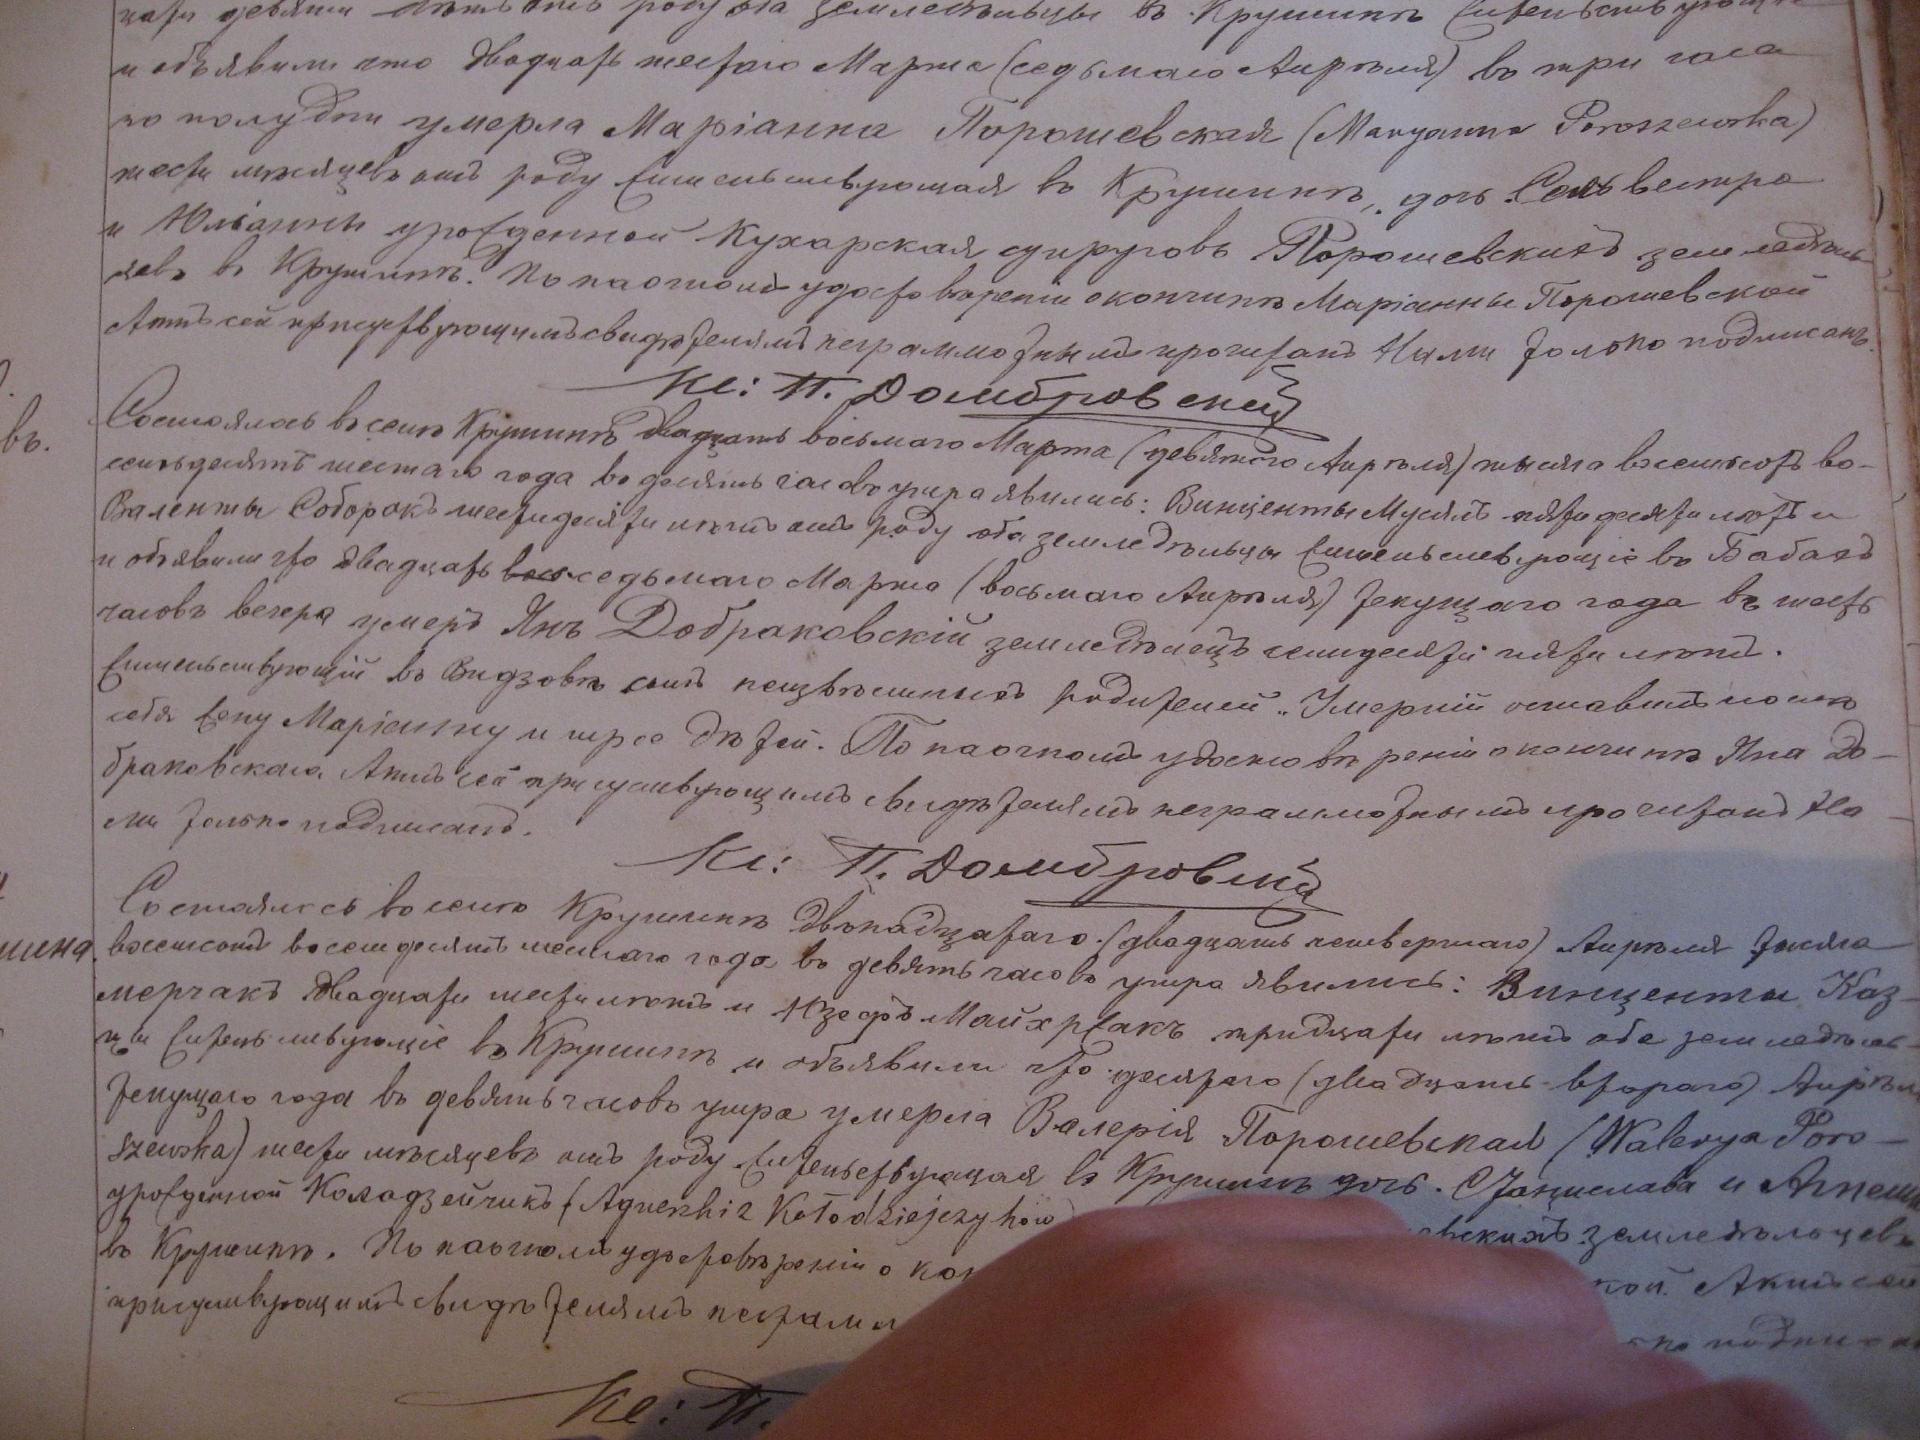 цати девяти лѣтъ отъ роду оба земледѣльцы въ Крушинѣ жительствующіе
и объявили что двадцать шестаго Марта (седьмаго Апрѣля) въ три часа
по полудни умерла Маріанна Порошевская (Maryanna Poroszewska)
шести мѣсяцевъ отъ роду жительствующая въ Крушинѣ, дочь Сельвестра
и Юліанны урожденной Кухарская супруговъ Порошевскихъ земледѣль
цевъ въ Крушинѣ. По наочномъ удостовѣреніи о кончинѣ Маріанны Порошевской
Актъ сей присутствующимъ свидѣтелямъ неграмотнымъ прочитанъ Нами только подписанъ.
Кс: П. Домбровскій
въ.
Состоялось въ селѣ Крушинѣ двадцать восьмаго Марта (девятого Апрѣля) тысяча восемьсотъ во-
семьдесятъ шестаго года въ десять часовъ утра явились: Винценты Мусялъ пятидесяти лѣтъ и
Валенты Соборакъ шестидесяти лѣтъ отъ роду оба земледѣльцы жительствующіе въ Бабахъ
и объявили что двадцать седьмаго Марта (восьмаго Апрѣля) текущаго года въ шесть
часовъ вечера умеръ Янъ Добраковскій земледѣлецъ семидесяти пяти лѣтъ.
жительствующій въ Видзовѣ сынъ неизвѣстныхъ родителей. Умершій оставилъ послѣ
себя жену Маріанну и трое дѣтей. По наочномъ удостовѣреніи о кончинѣ Яна До-
браковскаго Актъ сей присутствующимъ свидѣтелямъ неграмотнымъ прочитанъ На-
ми только подписанъ.
Кс: П. Домбровскій
Состоялось въ селѣ Крушинѣ двѣнадцатаго (двадцать четвертаго) Апрѣля тысяча
восемсотъ восемдесятъ шестаго года въ девять часовъ утра явились: Винценты Каз-
мерчакъ двадцати шести лѣтъ и Юзефъ Майхржакъ тридцати лѣтъ оба земледѣль-
цы жительствующіе въ Крушинѣ и объявили что десятаго (двадцать втораго) Апрѣля
текущаго года въ девять часовъ утра умерла Валерія Порошевская (Walerya Poro-
szewska) шести мѣсяцевъ отъ роду жительствующая въ Крушинѣ дочь Станислава и Агнешки
урожденной Колодзейчикъ (Agnieszki z Kołodziejczyków)
въ Крушинѣ. По наочномъ удостовѣреніи о кон
присутствующимъ свидѣтелямъ неграм
Кс: П.